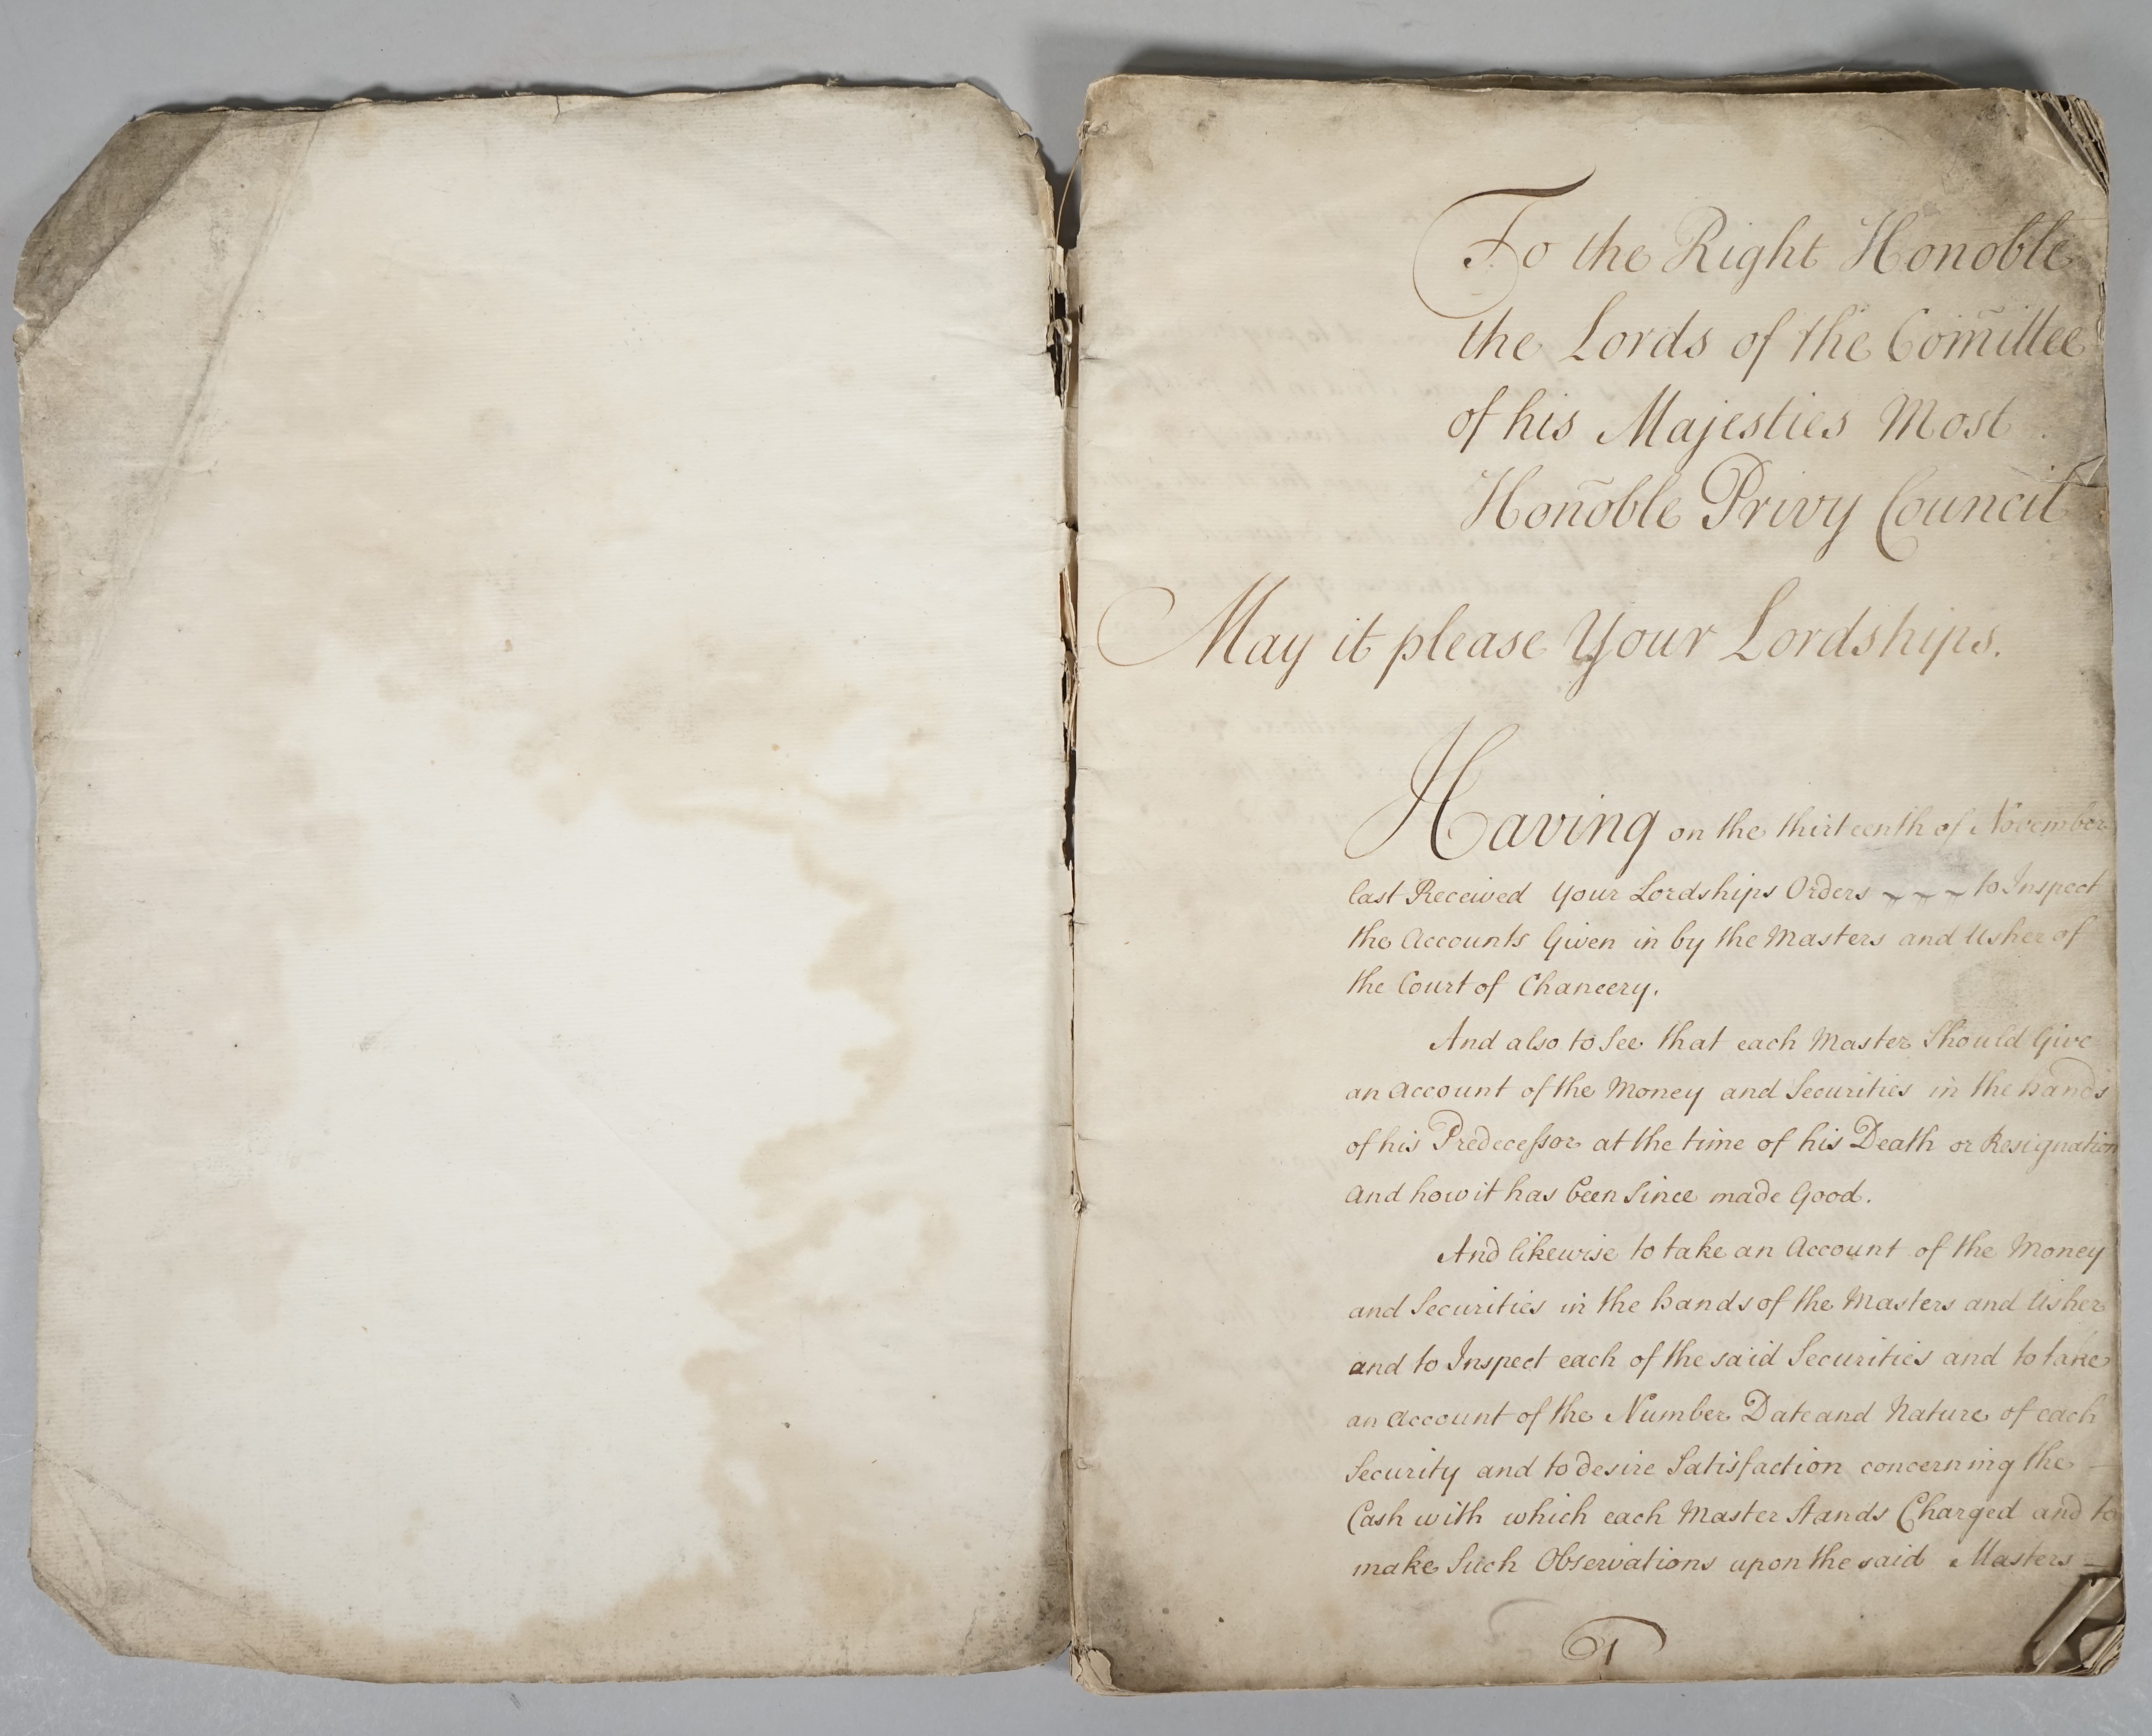 To the Right Honoble
the Lords of the Com̃ittee
of his Majesties Most
Hoñoble Privy Council
May it please Your Lordships.
Having on the thirteenth of November
last Received Your Lordships Orders ~ ~ ~ to Inspect
the Accounts Given in by the Masters and Usher of
the Court of Chancery.
And also to See that each Master Should Give
an Account of the Money and Securities in the hands
of his Predecessor at the time of his Death or Resignation
and how it has been Since made Good.
And likewise to take an Account of the Money
and Securities in the hands of the Masters and Usher
and to Inspect each of the said Securities and to take
an Account of the Number Date and Nature of each
Security and to desire Satisfaction concerning the —
Cash with which each Master Stands Charged and to
make Such Observations upon the said Masters —
1